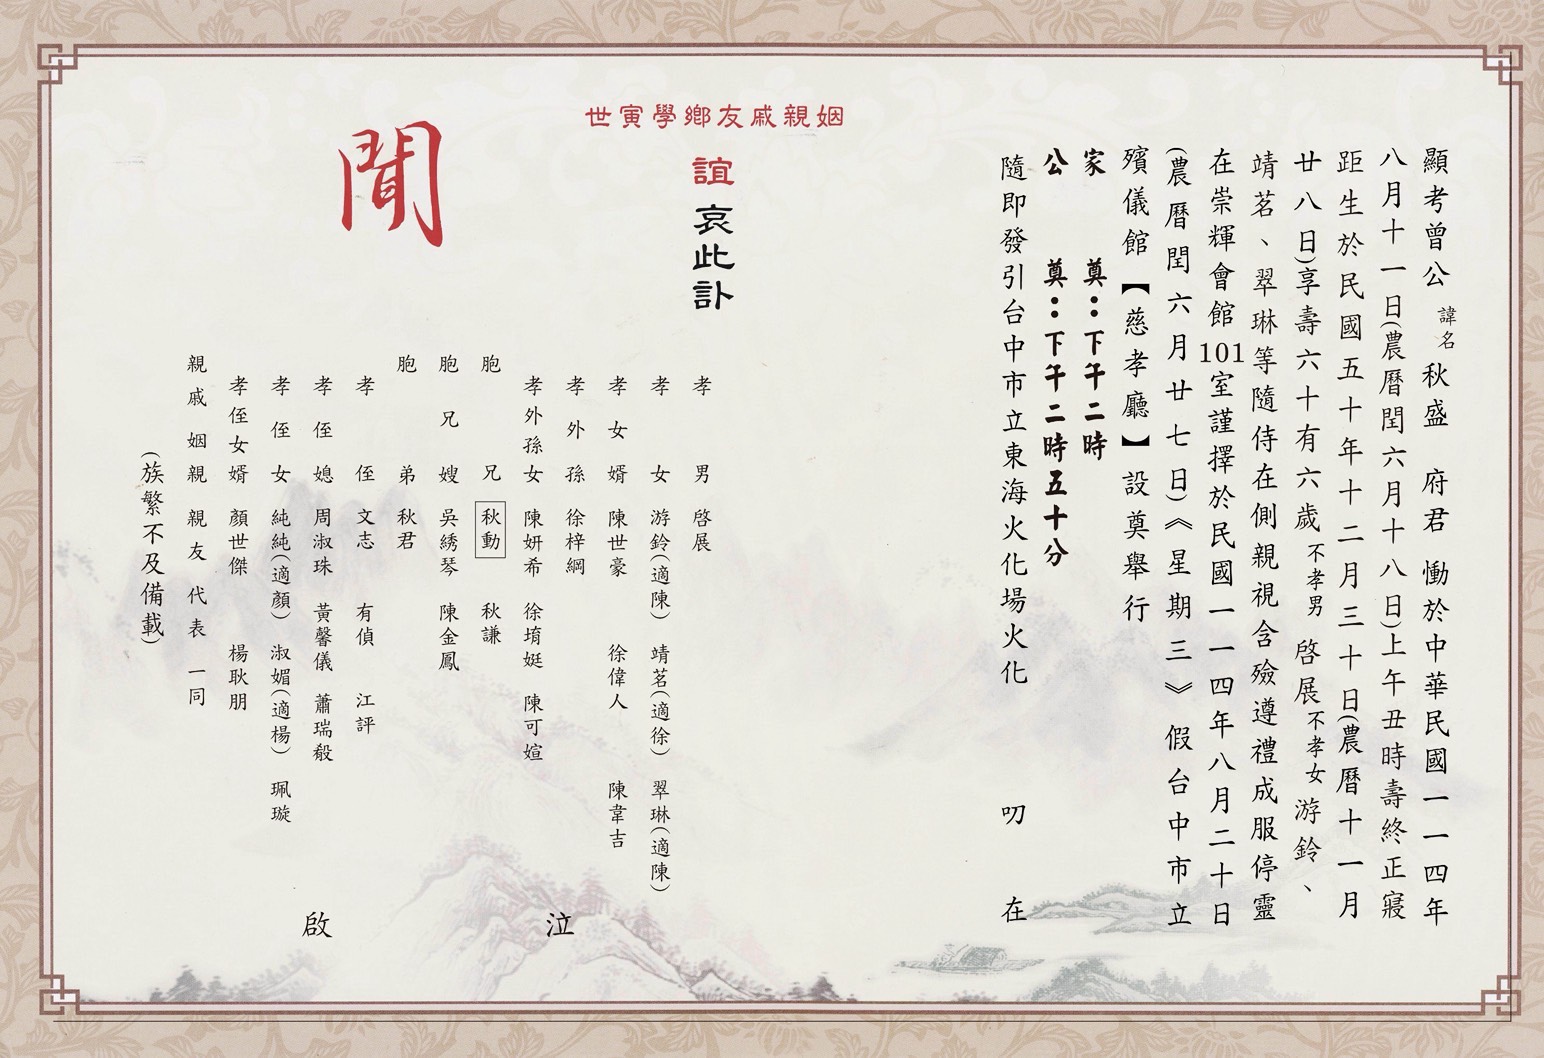 顯考曾公 諱名 秋盛 府君 慟於中華民國一一四年
八月十一日(農曆閏六月十八日)上午丑時壽終正寢
距生於民國五十年十二月三十日(農曆十一月
廿八日)享壽六十有六歲 不孝男 啓展 不孝女 游鈴、
靖茗、翠琳等隨侍在側親視含殮遵禮成服停靈
在崇輝會館101室謹擇於民國一一四年八月二十日
(農曆閏六月廿七日)《星期三》假台中市立
殯儀館【慈孝廳】設奠舉行
家 奠：下午二時
公 奠：下午二時五十分
隨即發引台中市立東海火化場火化 叨 在
姻親戚友鄉學寅世
誼 哀此訃
聞
孝 男 啓展
孝 女 游鈴(適陳) 靖茗(適徐) 翠琳(適陳)
孝女婿 陳世豪 徐偉人 陳韋吉
孝外孫 徐梓綱
孝外孫女 陳妍希 徐堉娗 陳可媗
胞 兄 秋動 秋謙
胞兄嫂 吳綉琴 陳金鳳
胞 弟 秋君
孝 侄 文志 有偵 江評
孝侄媳 周淑珠 黃馨儀 蕭瑞毅
孝侄女 純純(適顏) 淑媚(適楊) 珮璇
孝侄女婿 顏世傑 楊耿朋
親戚姻親親友代表一同
(族繁不及備載)
泣 啟